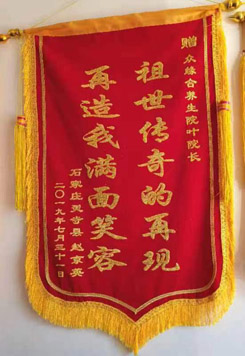 赠 众缘合养生院叶院长
祖世传奇的再现
再造我满面笑容
石家庄灵寺县 赵京英
二〇一九年七月三十一日